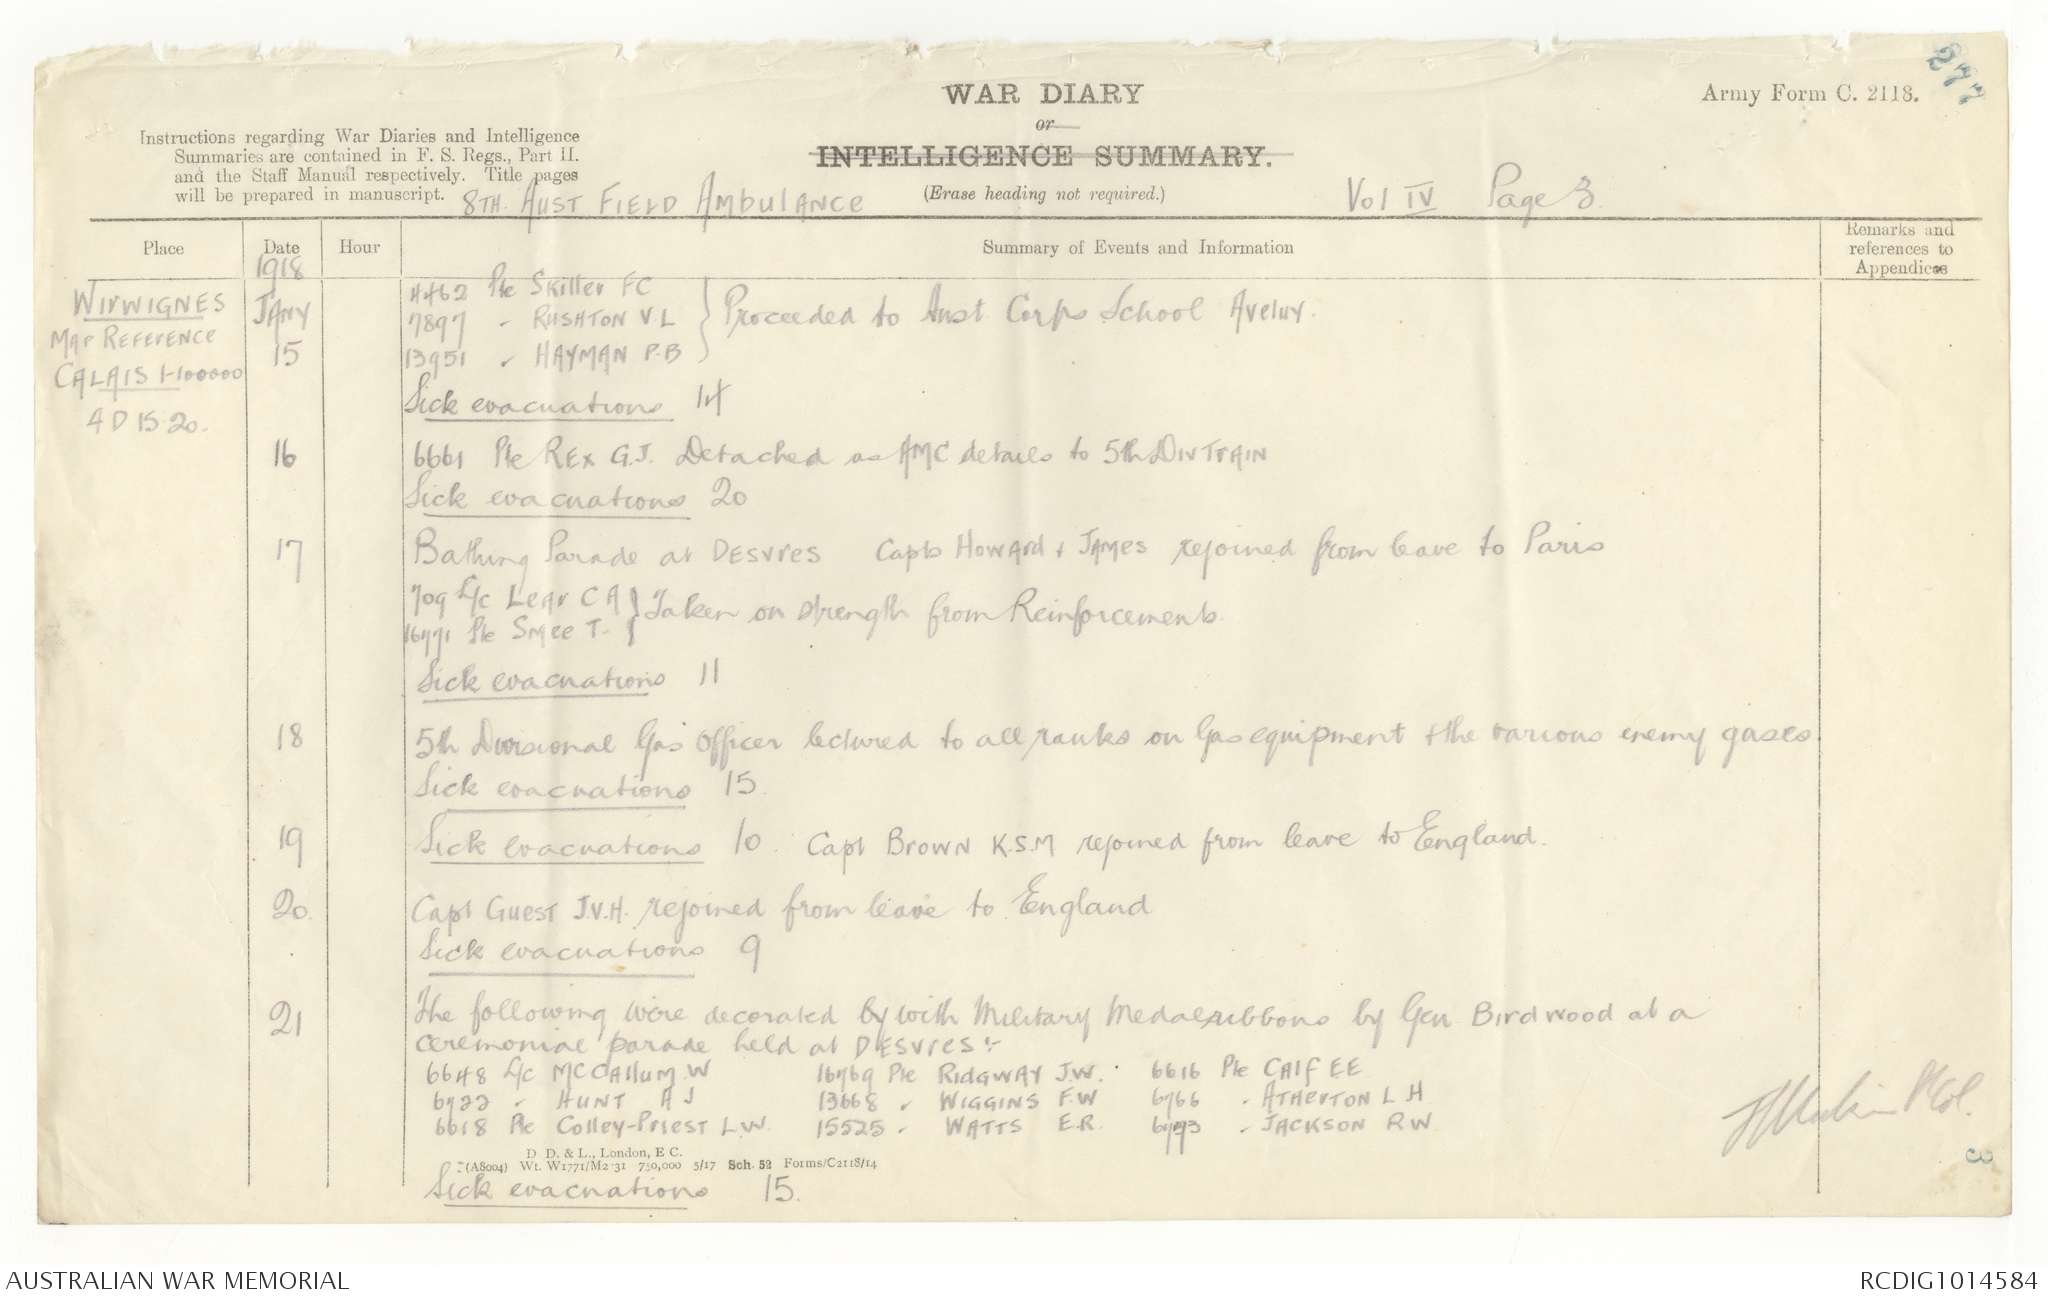 277
WAR DIARY
or
INTELLIGENCE SUMMARY.
(Erase heading not required.)
Army Form C. 2118.
Instructions regarding War Diaries and Intelligence
Summaries are contained in F. S. Regs., Part II.
and the Staff Manual respectively. Title pages
will be prepared in manuscript.
8TH. AUST FIELD AMBULANCE
Vol IV Page 3.
Place
Date
Hour
Summary of Events and Information
Remarks and
references to
Appendices
1918
WIRWIGNES
MAP REFERENCE
CALAIS 1-100000
4 D 15.20.
JANY
15
4462 Pte Skiller FC
7897 " RUSHTON V.L
13951 " HAYMAN P.B
} Proceeded to Aust Corps School Aveluy.
Sick evacuations 14
16
6661 Pte REX G.J. Detached as AMC details to 5th DIV TRAIN
Sick evacuations 20
17
Bathing Parade at DESVRES Capts HOWARD & JAMES rejoined from leave to Paris
709 L/C LEAR C A
16771 Pte Smee T.
} Taken on strength from Reinforcements.
Sick evacuations 11
18
5th Divisional Gas Officer lectured to all ranks on Gas equipment & the various enemy gases
Sick evacuations 15.
19
Sick evacuations 10. Capt BROWN K.S.M rejoined from leave to England.
20.
Capt GUEST J.V.H. rejoined from leave to England
Sick evacuations 9
21
The following were decorated by with Military Medal ribbons by Gen Birdwood at a
ceremonial parade held at DESVRES:-
6648 L/C McCallum W 16769 Pte RIDGWAY J.W. 6616 Pte CALF EE
6722 " HUNT A J 13668 " WIGGINS F.W 6766 " ATHERTON L H
6618 Pte Colley-Priest L.W. 15525 " WATTS E.R. 6773 " JACKSON R W
D D. & L., London, E C.
(A8004) Wt. W1771/M2 31 750,000 5/17 Sch. 52 Forms/C2118/14
Sick evacuations 15.
Col.
3
AUSTRALIAN WAR MEMORIAL
RCDIG1014584